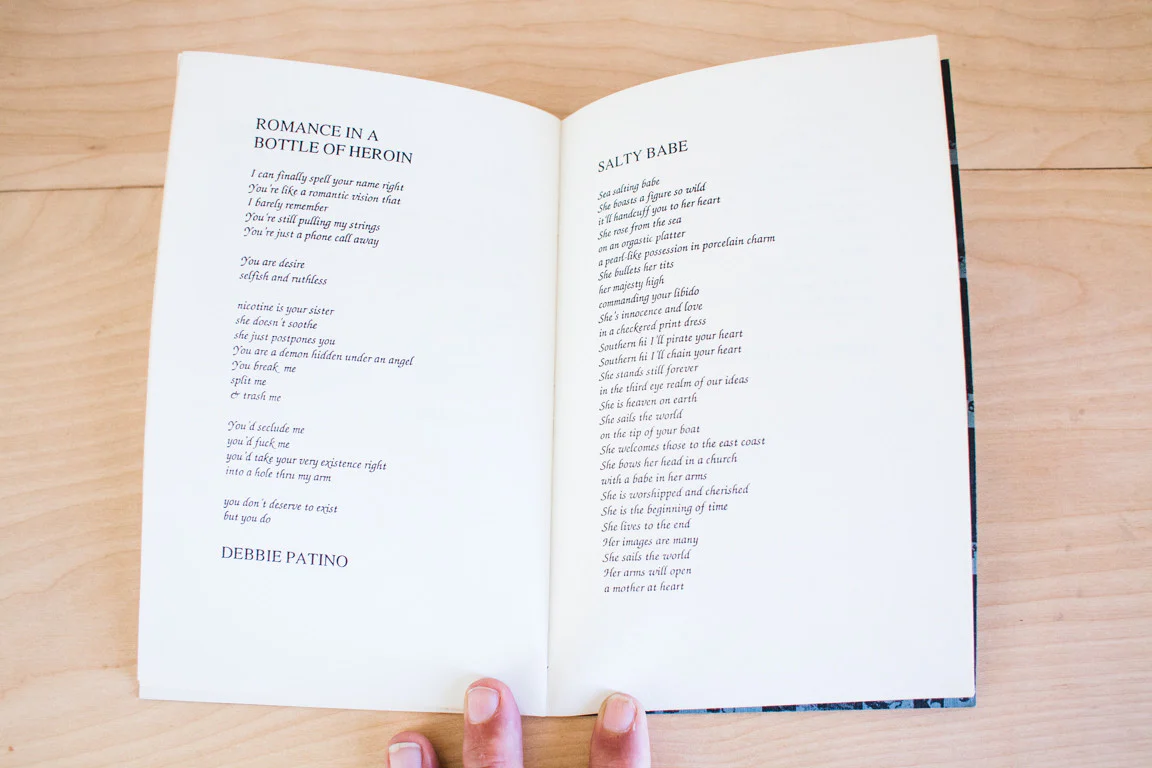 ROMANCE IN A
BOTTLE OF HEROIN
I can finally spell your name right
You're like a romantic vision that
I barely remember
You're still pulling my strings
You're just a phone call away
You are desire
selfish and ruthless
nicotine is your sister
she doesn't soothe
she just postpones you
You are a demon hidden under an angel
You break me
split me
& trash me
You'd seclude me
you'd fuck me
you'd take your very existence right
into a hole thru my arm
you don't deserve to exist
but you do
DEBBIE PATINO
SALTY BABE
Sea salting babe
She boasts a figure so wild
it'll handcuff you to her heart
She rose from the sea
on an orgastic platter
a pearl-like possession in porcelain charm
She bullets her tits
her majesty high
commanding your libido
She's innocence and love
in a checkered print dress
Southern hi I'll pirate your heart
Southern hi I'll chain your heart
She stands still forever
in the third eye realm of our ideas
She is heaven on earth
She sails the world
on the tip of your boat
She welcomes those to the east coast
She bows her head in a church
with a babe in her arms
She is worshipped and cherished
She is the beginning of time
She lives to the end
Her images are many
She sails the world
Her arms will open
a mother at heart